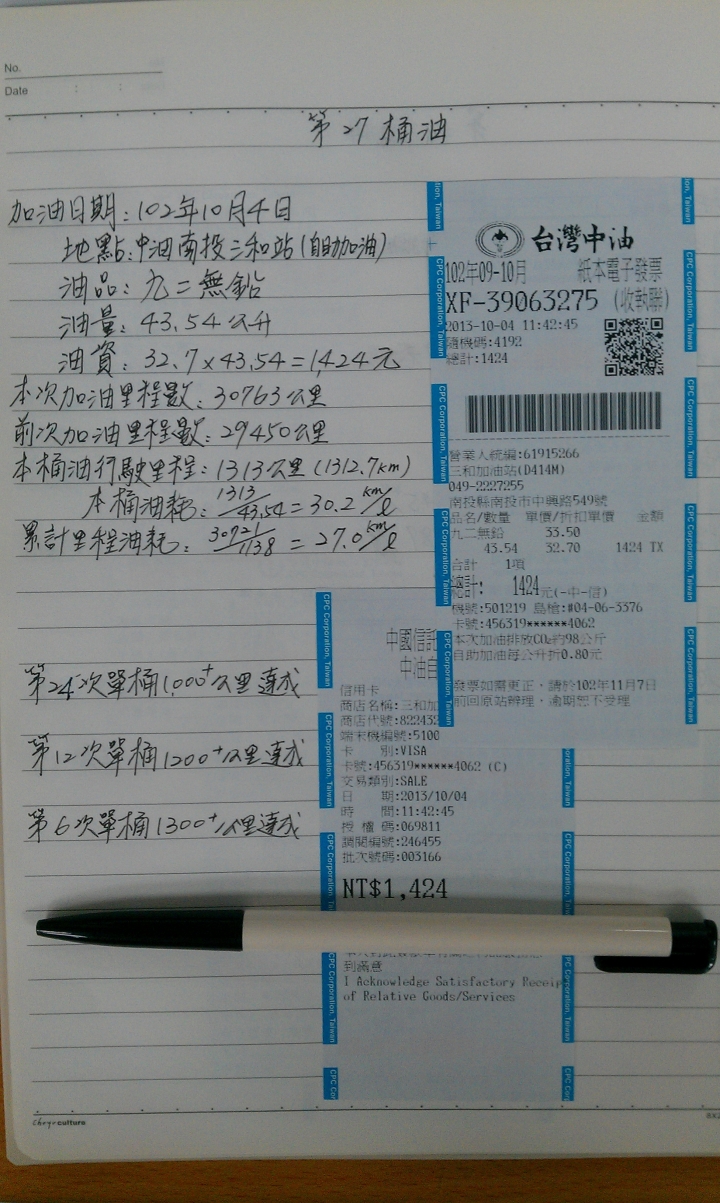 No.
Date : :
第27桶油
加油日期：102年10月4日
地點：中油南投三和站(自助加油)
油品：九二無鉛
油量：43.54公升
油資：32.7×43.54=1,424元
本次加油里程數：30763公里
前次加油里程數：29450公里
本桶油行駛里程：1313公里(1312.7km)
本桶油耗：1313/43.54=30.2 km/l
累計里程油耗：30721/1138=27.0 km/l
第24次單桶1,000⁺公里達成
第12次單桶1200⁺公里達成
第6次單桶1300⁺公里達成
台灣中油
102年09-10月 紙本電子發票
XF-39063275 (收執聯)
2013-10-04 11:42:45
隨機碼:4192
總計:1424
營業人統編:61915266
三和加油站(D414M)
049-2227255
南投縣南投市中興路549號
品名/數量 單價/折扣單價 金額
九二無鉛 33.50
43.54 32.70 1424 TX
合計 1項
總計: 1424元(-中-信)
機號:501219 島槍:#04-06-3376
卡號:456319******4062
本次加油排放CO₂約98公斤
自助加油每公升折0.80元
發票如需更正，請於102年11月7日
前回原站辦理，逾期恕不受理
中國信託
中油自
信用卡
商店名稱:三和加
商店代號:822432
端末機編號:5100
卡 別:VISA
卡號:456319******4062 (C)
交易類別:SALE
日 期:2013/10/04
時 間:11:42:45
授權碼:069811
調閱編號:246455
批次號碼:003166
NT$1,424
到滿意
I Acknowledge Satisfactory Receip
of Relative Goods/Services
CPC Corporation, Taiwan
culture